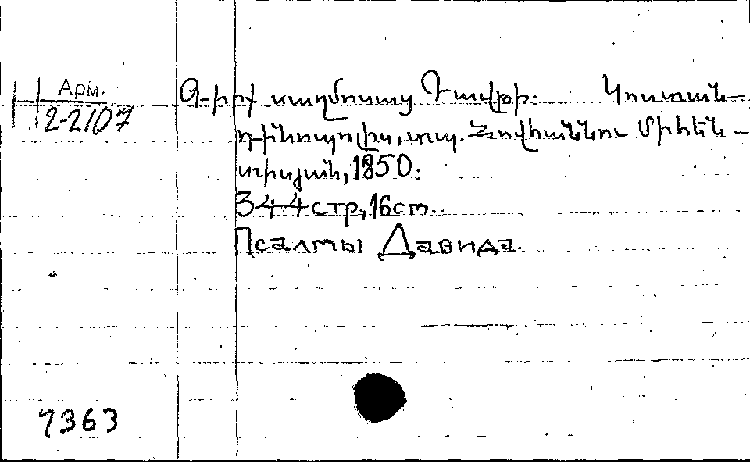 Арм.
2-2107
Գիրք սաղմոսաց Դաւթի. Կոստան-
դինուպօլիս, տպ. Յովհաննու Միւհեն-
տիսյան, 1850.
344 стр, 16см.
Псалмы Давида.
7363